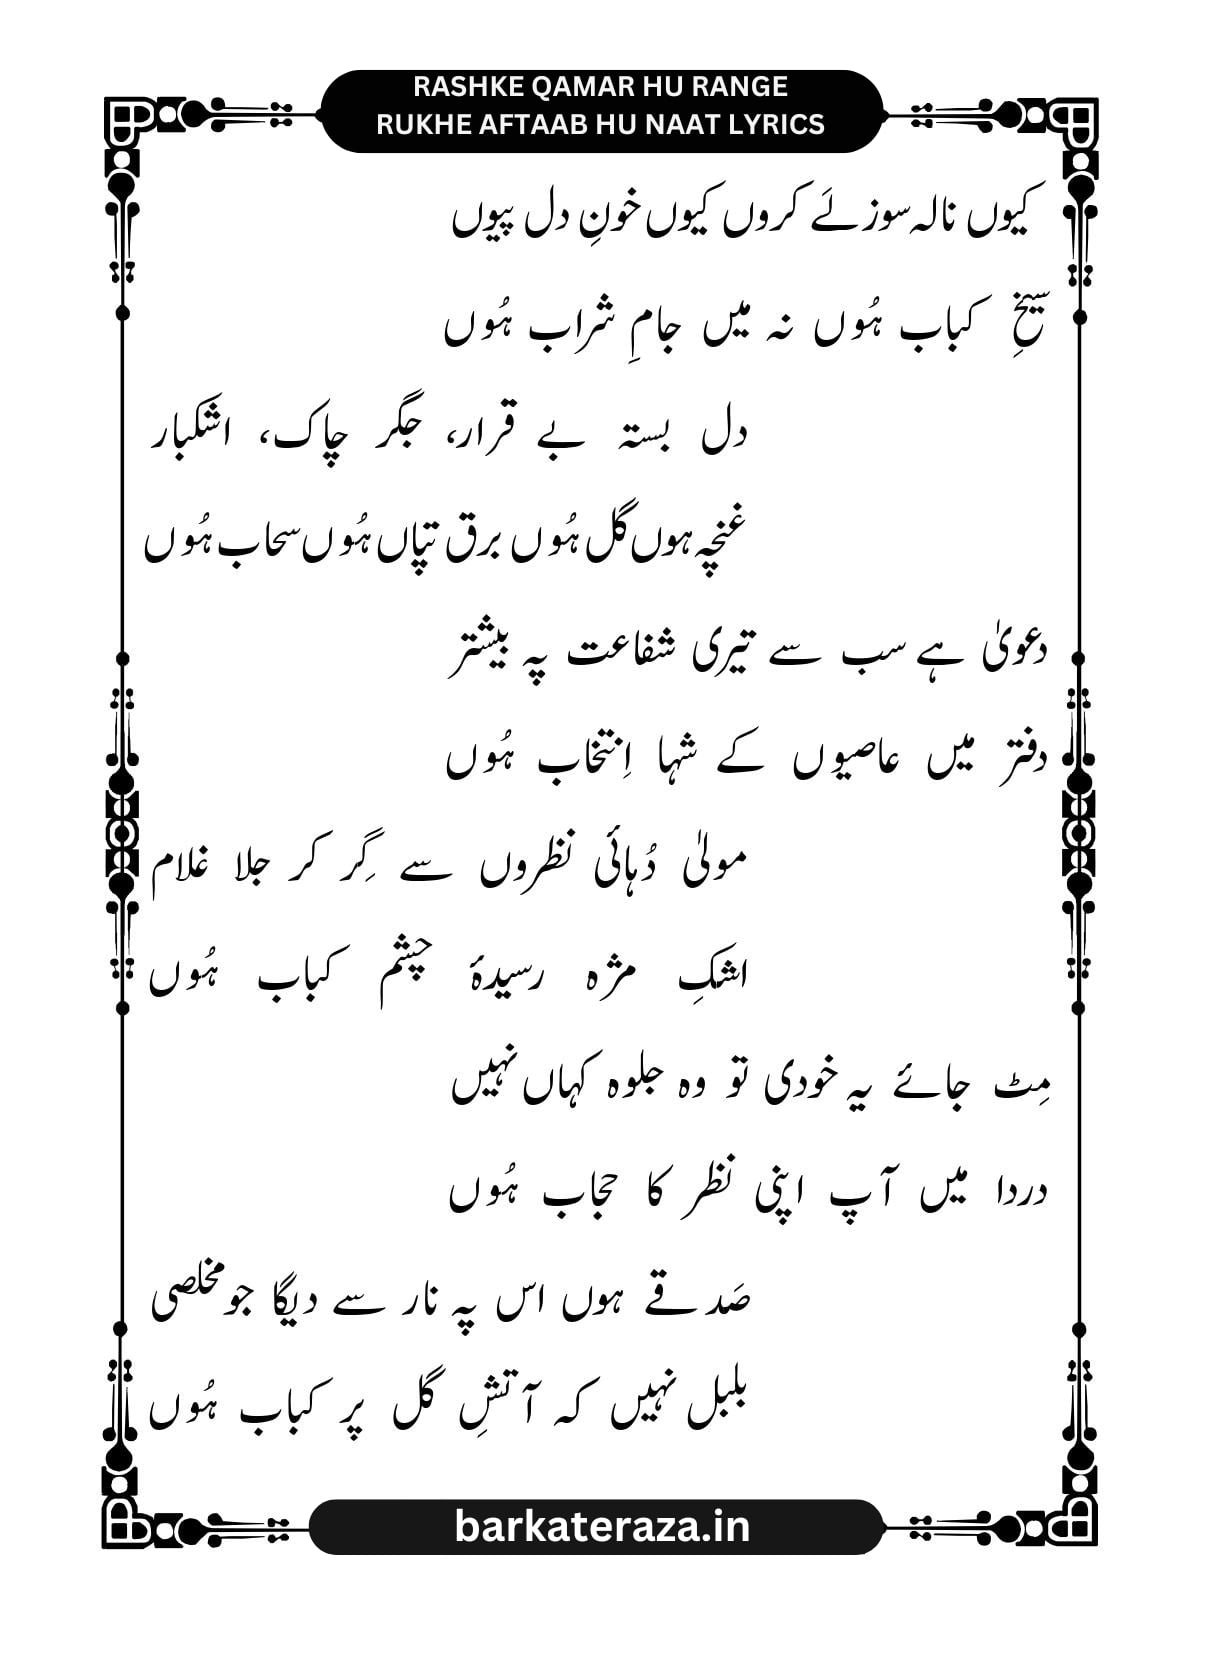 RASHKE QAMAR HU RANGE
RUKHE AFTAAB HU NAAT LYRICS
کیوں نالہ سوزئے کروں کیوں خونِ دل پیوں
سیخِ کباب ہُوں نہ میں جامِ شراب ہُوں
دل بستہ بے قرار، جگر چاک، اشکبار
غنچہ ہوں گل ہُوں برق تپاں ہُوں سحاب ہُوں
دعویٰ ہے سب سے تیری شفاعت پہ بیشتر
دفتر میں عاصیوں کے شہا اِنتخاب ہُوں
مولیٰ دُہائی نظروں سے گِر کر جلا غلام
اشکِ مژہ رسیدۂ چشم کباب ہُوں
مِٹ جائے یہ خودی تو وہ جلوہ کہاں نہیں
دردا میں آپ اپنی نظر کا حجاب ہُوں
صَدقے ہوں اس پہ نار سے دیگا جو مخلصی
بلبل نہیں کہ آتشِ گل پر کباب ہُوں
barkateraza.in